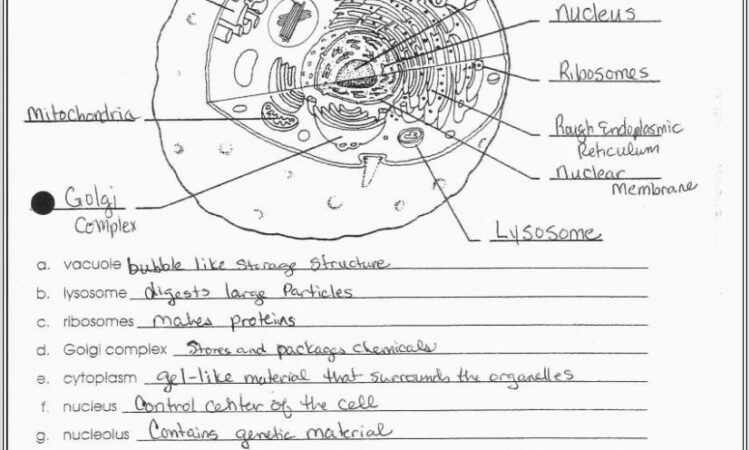 Nucleus
Ribosomes
Mitochondria
Rough Endoplasmic
Reticulum
Nuclear
Membrane
Golgi
Complex
Lysosome
a. vacuole bubble like storage structure
b. lysosome digests large particles
c. ribosomes makes proteins
d. Golgi complex Stores and packages chemicals
e. cytoplasm gel-like material that surrounds the organelles
f. nucleus Control center of the cell
g. nucleolus Contains genetic material